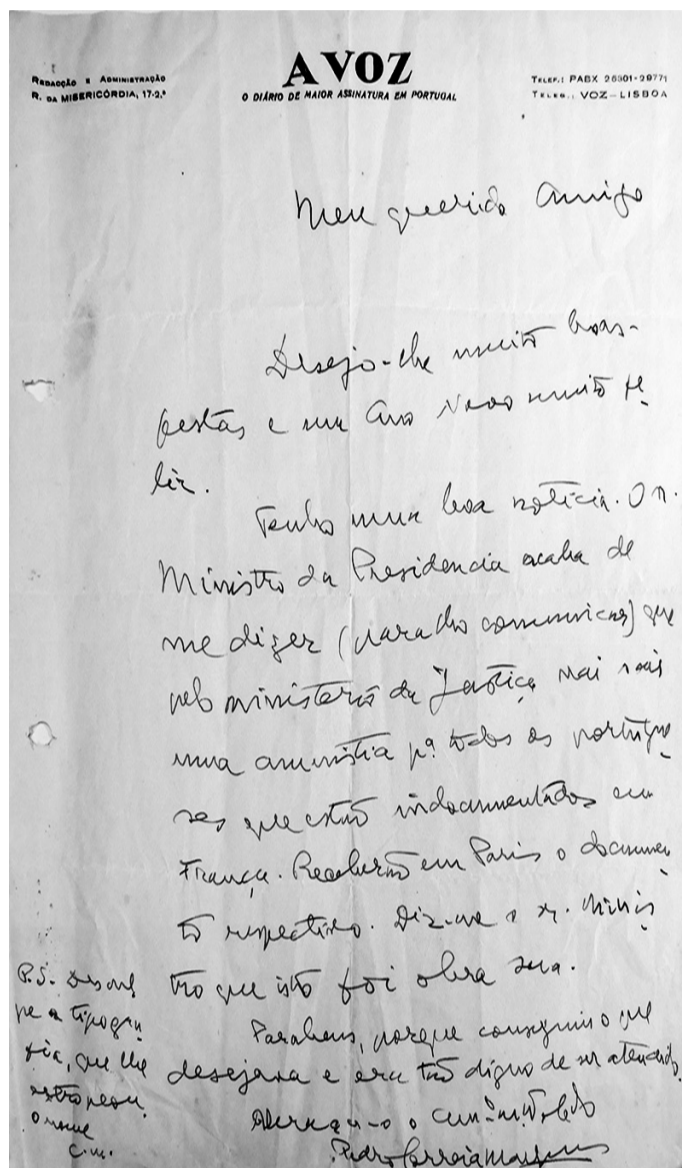 REDACÇÃO E ADMINISTRAÇÃO
R. DA MISERICÓRDIA, 17-2.º
A VOZ
O DIÁRIO DE MAIOR ASSINATURA EM PORTUGAL
TELEF.: PABX 26301-29771
TELEG.: VOZ—LISBOA
Meu querido Amigo
Desejo-lhe muito boas-
festas e um Ano Novo muito fe-
liz.
Tenho uma boa notícia. O sr.
Ministro da Presidencia acaba de
me dizer (para lho comunicar) que
pelo ministerio da Justiça vai sair
uma amnistia pª todos os portugue-
ses que estão indocumentados em
França. Receberão em Paris o documen-
to respectivo. Diz-me o sr. Minis
tro que isto foi obra sua.
Parabens, porque conseguiu o que
desejava e era tão digno de ser atendido.
Abraça-o o
Pedro Correia Marques
P.S. Descul
pe a tipogra
fia, que lhe
estropeou
o nome
C.M.